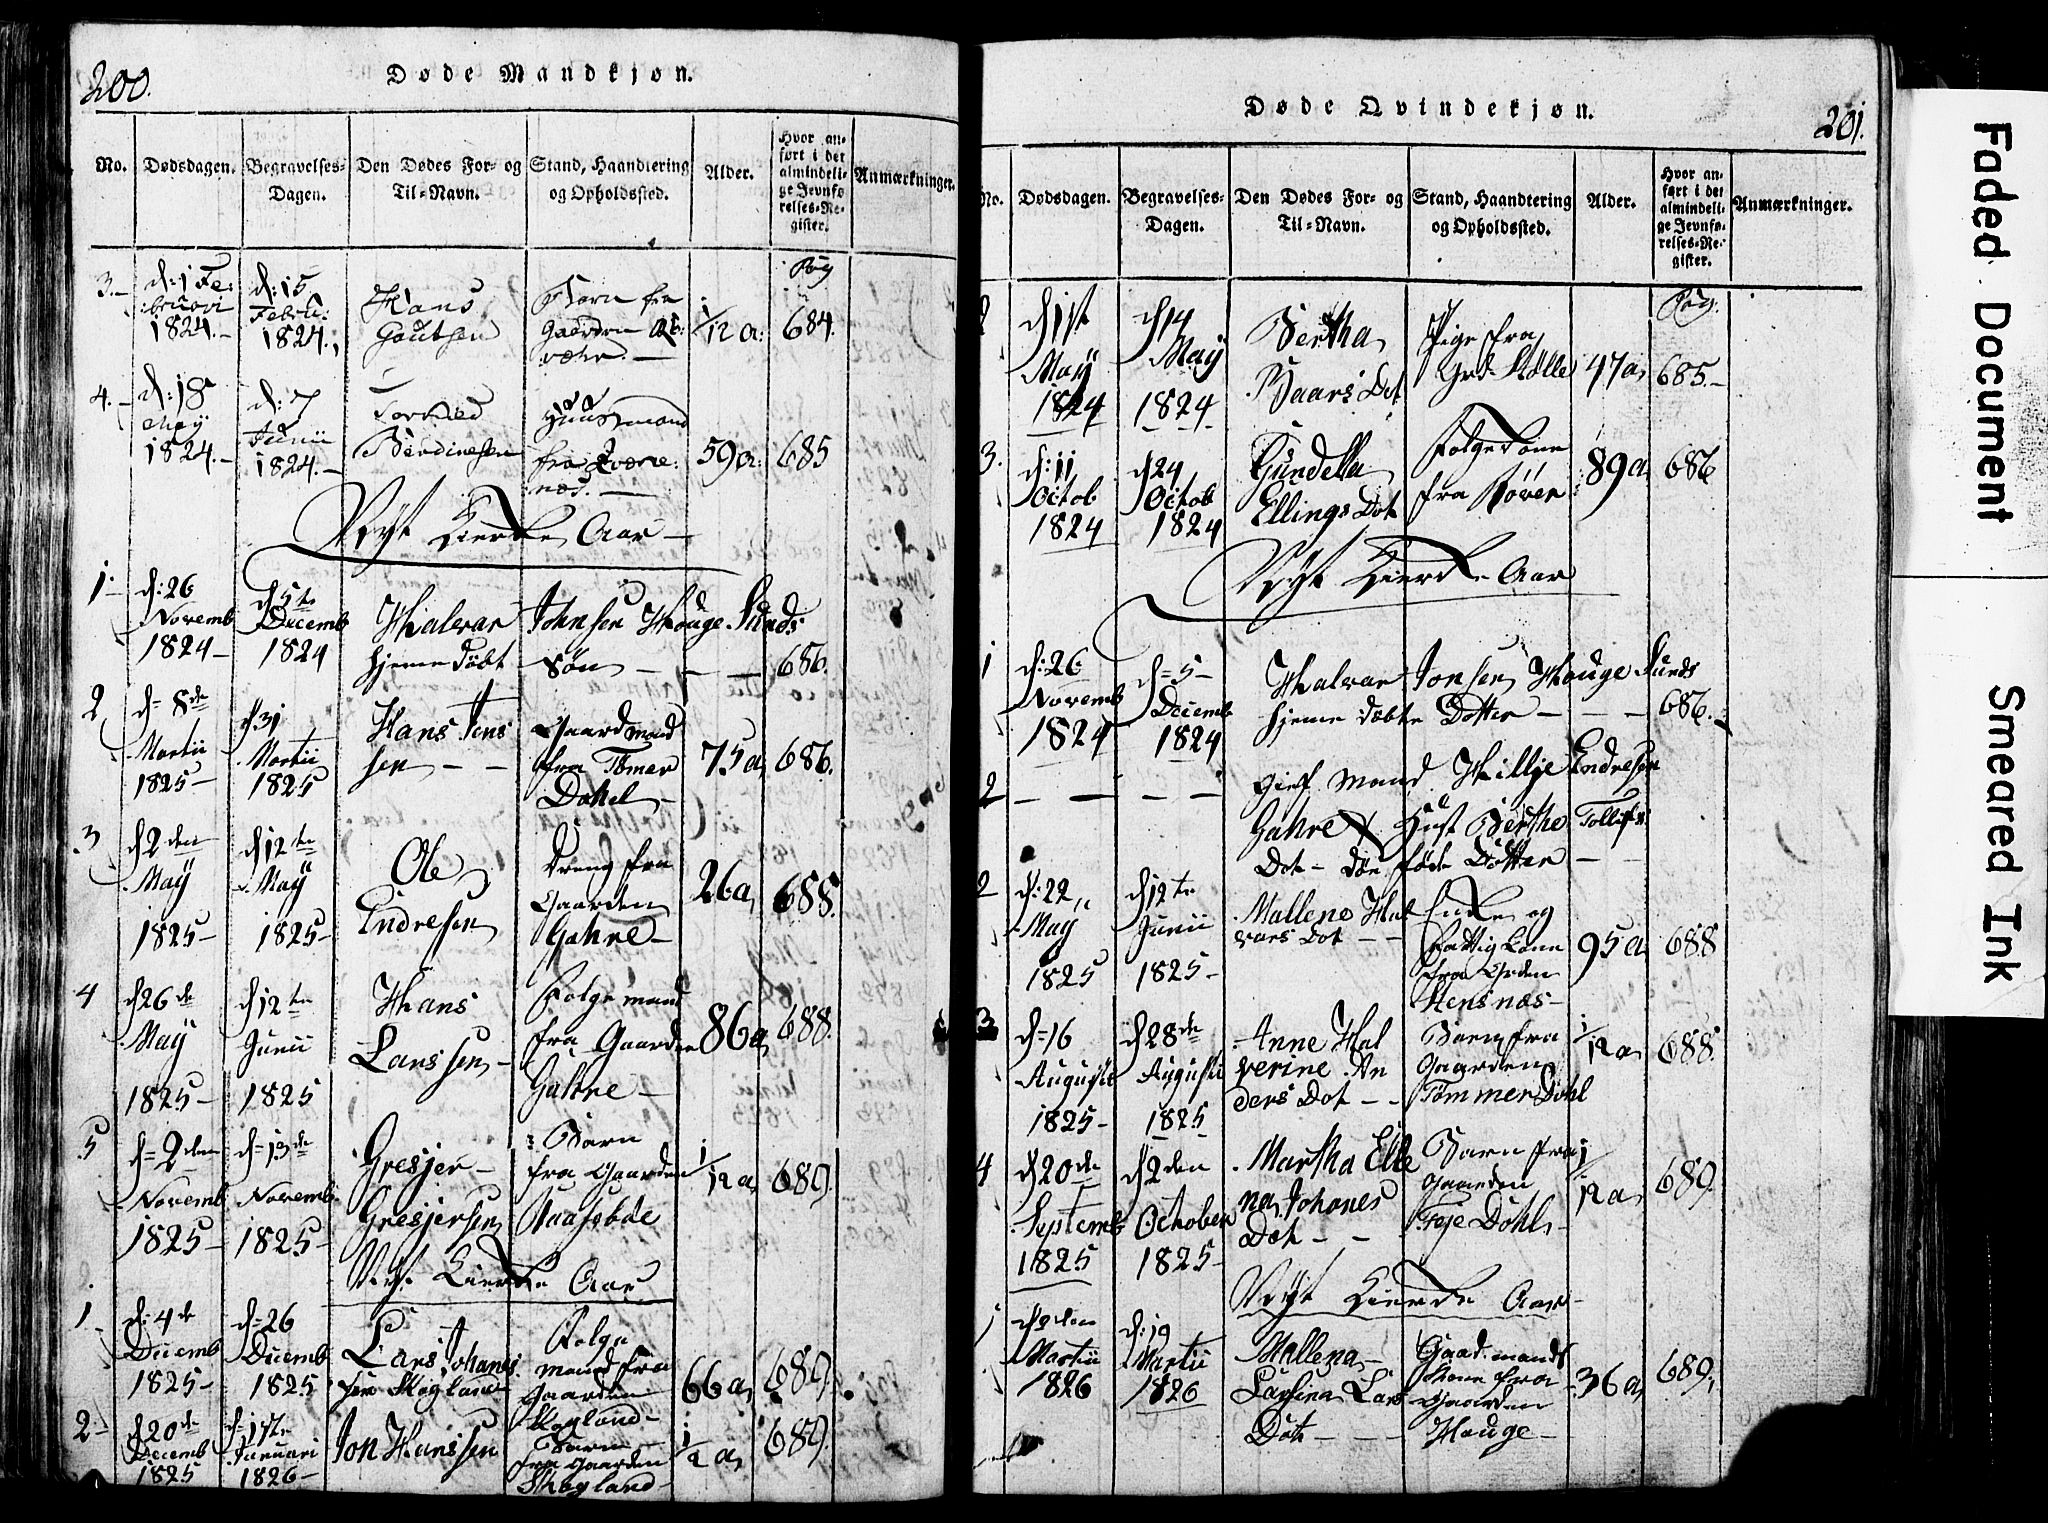 200.
Døde Mandkjøn.
No.
Dødsdagen.
Begravelses-
Dagen.
Den Dødes For- og
Til-Navn.
Stand, Haandtering
og Opholdssted.
Alder.
Hvor an-
ført i det
almindeli-
ge Jevnfø-
relses-Re-
gister.
Anmærkninger.
3.
d: 1 Fe:
bruari
1824.
d: 15
Febru:
1824.
Hans
Gautsen
Barn fra
Gaarden
1/12 a:
Pag
684.
4.
d: 18
May
1824.
d: 7
Junii
1824.
Berdinesen
Huusmand
fra
næs.
59 a:
685
Nyt Kierke Aar
1.
d: 26
Novemb
1824
d 5te
Decemb
1824
Halvar Johnsen Houge Sunds
hjemedøbt søn
686.
2
d= 8de
Martii
1825
d 31
Martii
1825
Hans Jens
sen
Gaardmand
fra Tømer
Dahel
75 a
686.
3
d 2den
May
1825
d 12te
May
1825
Ole
Endresen
Dreng fra
Gaarden
Gahre
26 a
688.
4
d 26de
May
1825
d 12te
Junii
1825
Hans
Larssen
Folgemand
fra Gaarden
Gahre
86 a
688.
5
d= 2den
Novemb
1825
d= 13de
Novemb
1825
Gresjer
Gresjersen
Barn
fra Gaarden
1/12 a
689.
Nyt Kierke Aar
1
d: 4de
Decemb
1825
d= 26
Decemb
1825
Lars Johanes
sen Skogland
Folge
mand fra
Gaarden
Skogland
66 a
689.
2
d 20de
Decemb
1825
d: 1te
Januari
1826
Jon Hanssen
Barn
fra Gaarden
Skogland
1/2 a
689.
201.
Døde Qvindekjøn.
No.
Dødsdagen.
Begravelses-
Dagen.
Den Dødes For- og
Til-Navn.
Stand, Haandtering
og Opholdssted.
Alder.
Hvor an-
ført i det
almindeli-
ge Jevnfø-
relses-Re-
gister.
Anmærkninger.
2
d 1st
May
1824
d 14
May
1824
Bertha
Baars Dot
Pige fra
Grd.
47 a
Pag.
685.
3.
d: 11
Octob
1824
d 24
Octob
1824
Gundella
Ellings Dot
Folgekone
fra Røver
89 a
686
Nyt Kierke Aar
1
d: 26
Novemb
1824
d= 5
Decemb
1824
Halvar Jonsen Houge Sunds
hjemedøbte Dotter
686.
2
Gift Mand Hillje Endresen
Gahre Hust Berthe Tollifs
Dot - død føde Dotter
2
d: 22
May
1825
d 12te
Junii
1825
Mallene Hal
vars Dot
Enke og
Fattig Kone
fra Grden
Stensnæs
95 a
688
3
d= 16
Augusti
1825
d 28de
Augusti
1825
Anne Hal
verine An
ders Dot
Barn fra
Gaarden
Tømmer Dohl
1/12 a
688.
4
d 20de
Septemb
1825
d 2den
October
1825
Martha Elle
na Johanes
Dot
Barn fra
Gaarden
Feje Dohl
1/12 a
689.
Nyt Kierke Aar
1
Martii
1826
d: 19
Martii
1826
Mallena
Larsina Lars
Dot
Gaardmands
Kone fra
Gaarden
Houge
36 a
689.
Faded Document
Smeared Ink